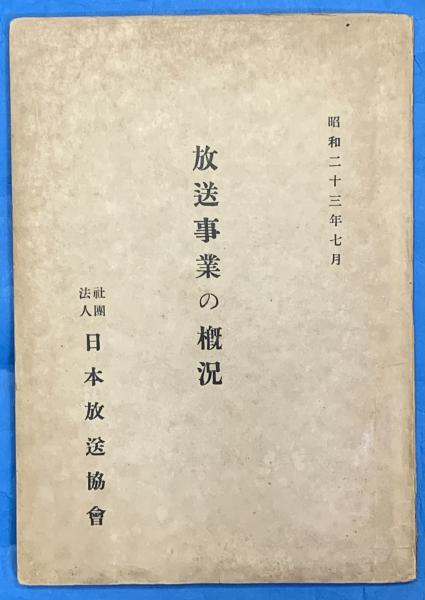 昭和二十三年七月
放送事業の概況
社團法人 日本放送協會